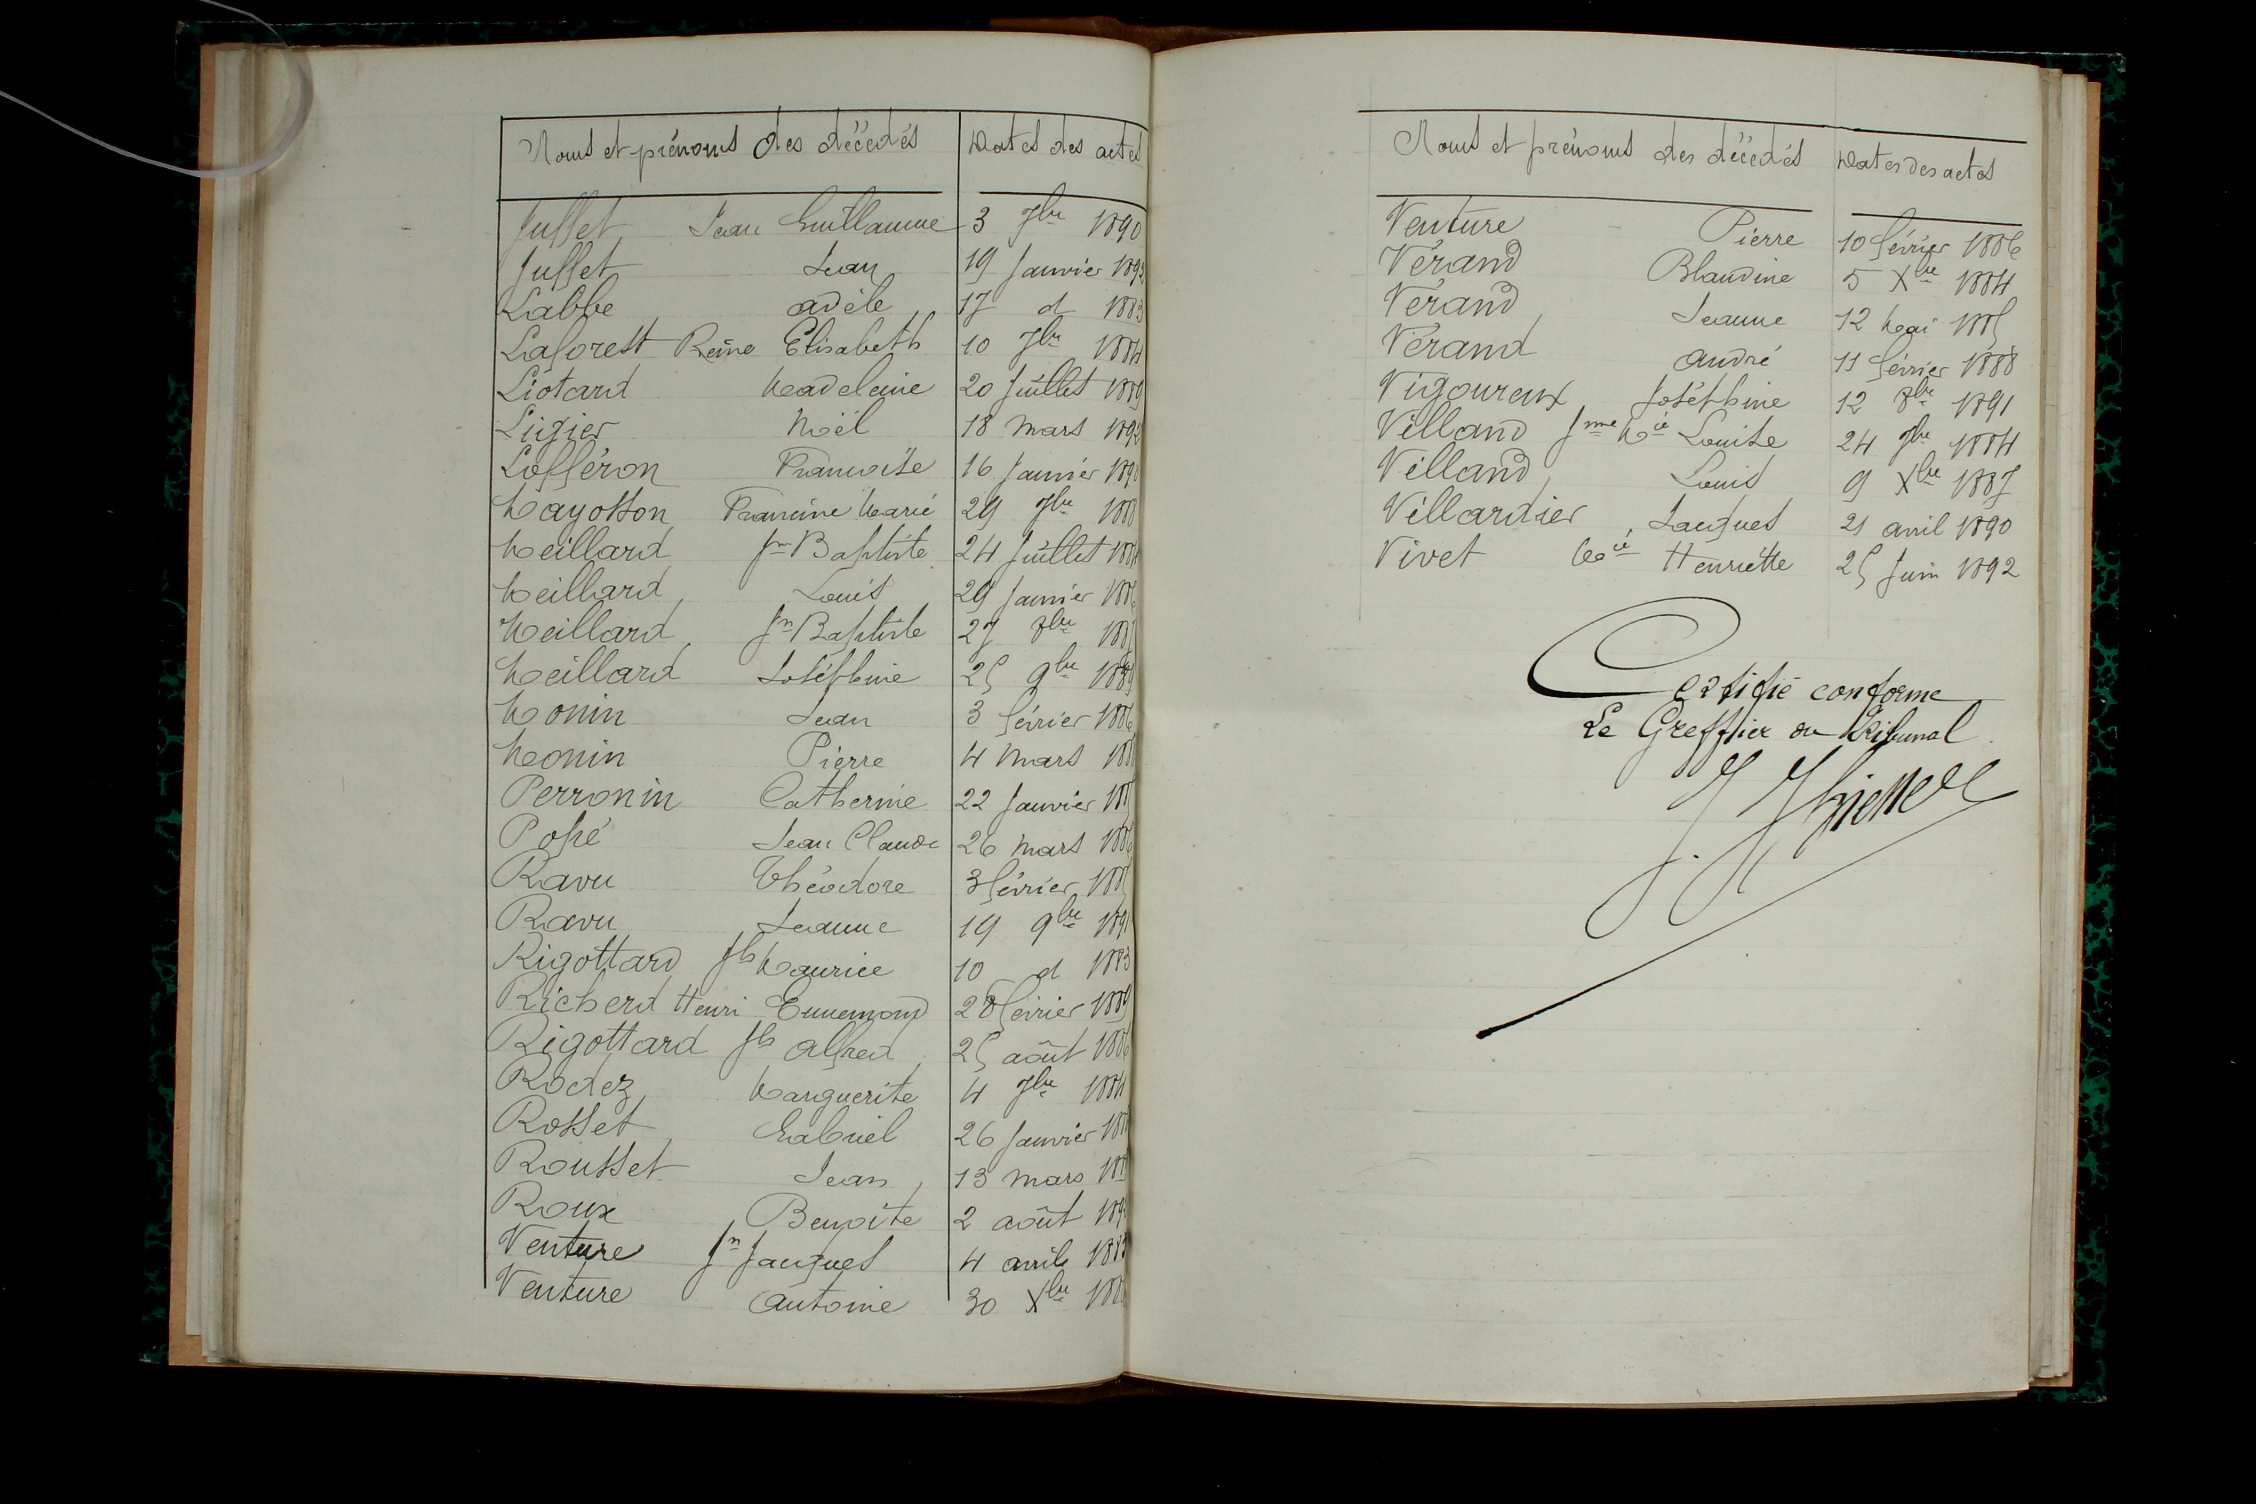 Noms et prénoms des décédés Dates des actes
Juffet Jean Guillaume 3 7bre 1890
Juffet Jean 19 Janvier 1892
Labbe adèle 17 d 1883
Laforest Reine Elisabeth 10 7bre 1884
Liotard Madeleine 20 Juillet 1889
Ligier Noël 18 Mars 1892
Lofféron Françoise 16 Janvier 1890
Mayosson Francine Marie 29 7bre 1888
Meillard Jn Baptiste 24 Juillet 1884
Meillard Louis 29 Janvier
Meillard Jn Baptiste 27 8bre 1887
Meillard Joséphine 25 9bre 1889
Monin Jean 3 février 1886
Monin Pierre 4 Mars
Perronin Catherine 22 Janvier
Popé Jean Claude 26 Mars 1886
Ravu Théodore 3 février 1885
Ravu Jeanne 19 9bre 1891
Rigottard Jh Maurice 10 d 1883
Richerd Henri Ennemond 28 février 1889
Rigottard Jh alfred 25 août 1886
Rodez Marguerite 4 7bre 1884
Rosset Gabriel 26 Janvier
Rousset Jean 13 Mars
Roux Benoite 2 août
Venture Jn Jacques 4 avril 1883
Venture Antoine 30 Xbre
Noms et prénoms des décédés Dates des actes
Venture Pierre 10 février 1886
Vérand Blandine 5 Xbre 1884
Vérand Jeanne 12 Mai 1885
Vérand André 11 février 1888
Vigoureux Joséphine 12 8bre 1891
Villand Jnne Mie Louise 24 7bre 1884
Villand Louis 9 Xbre 1887
Villardier Jacques 21 avril 1890
Vivet Mie Henriette 25 Juin 1892
Certifié conforme
Le Greffier du Tribunal